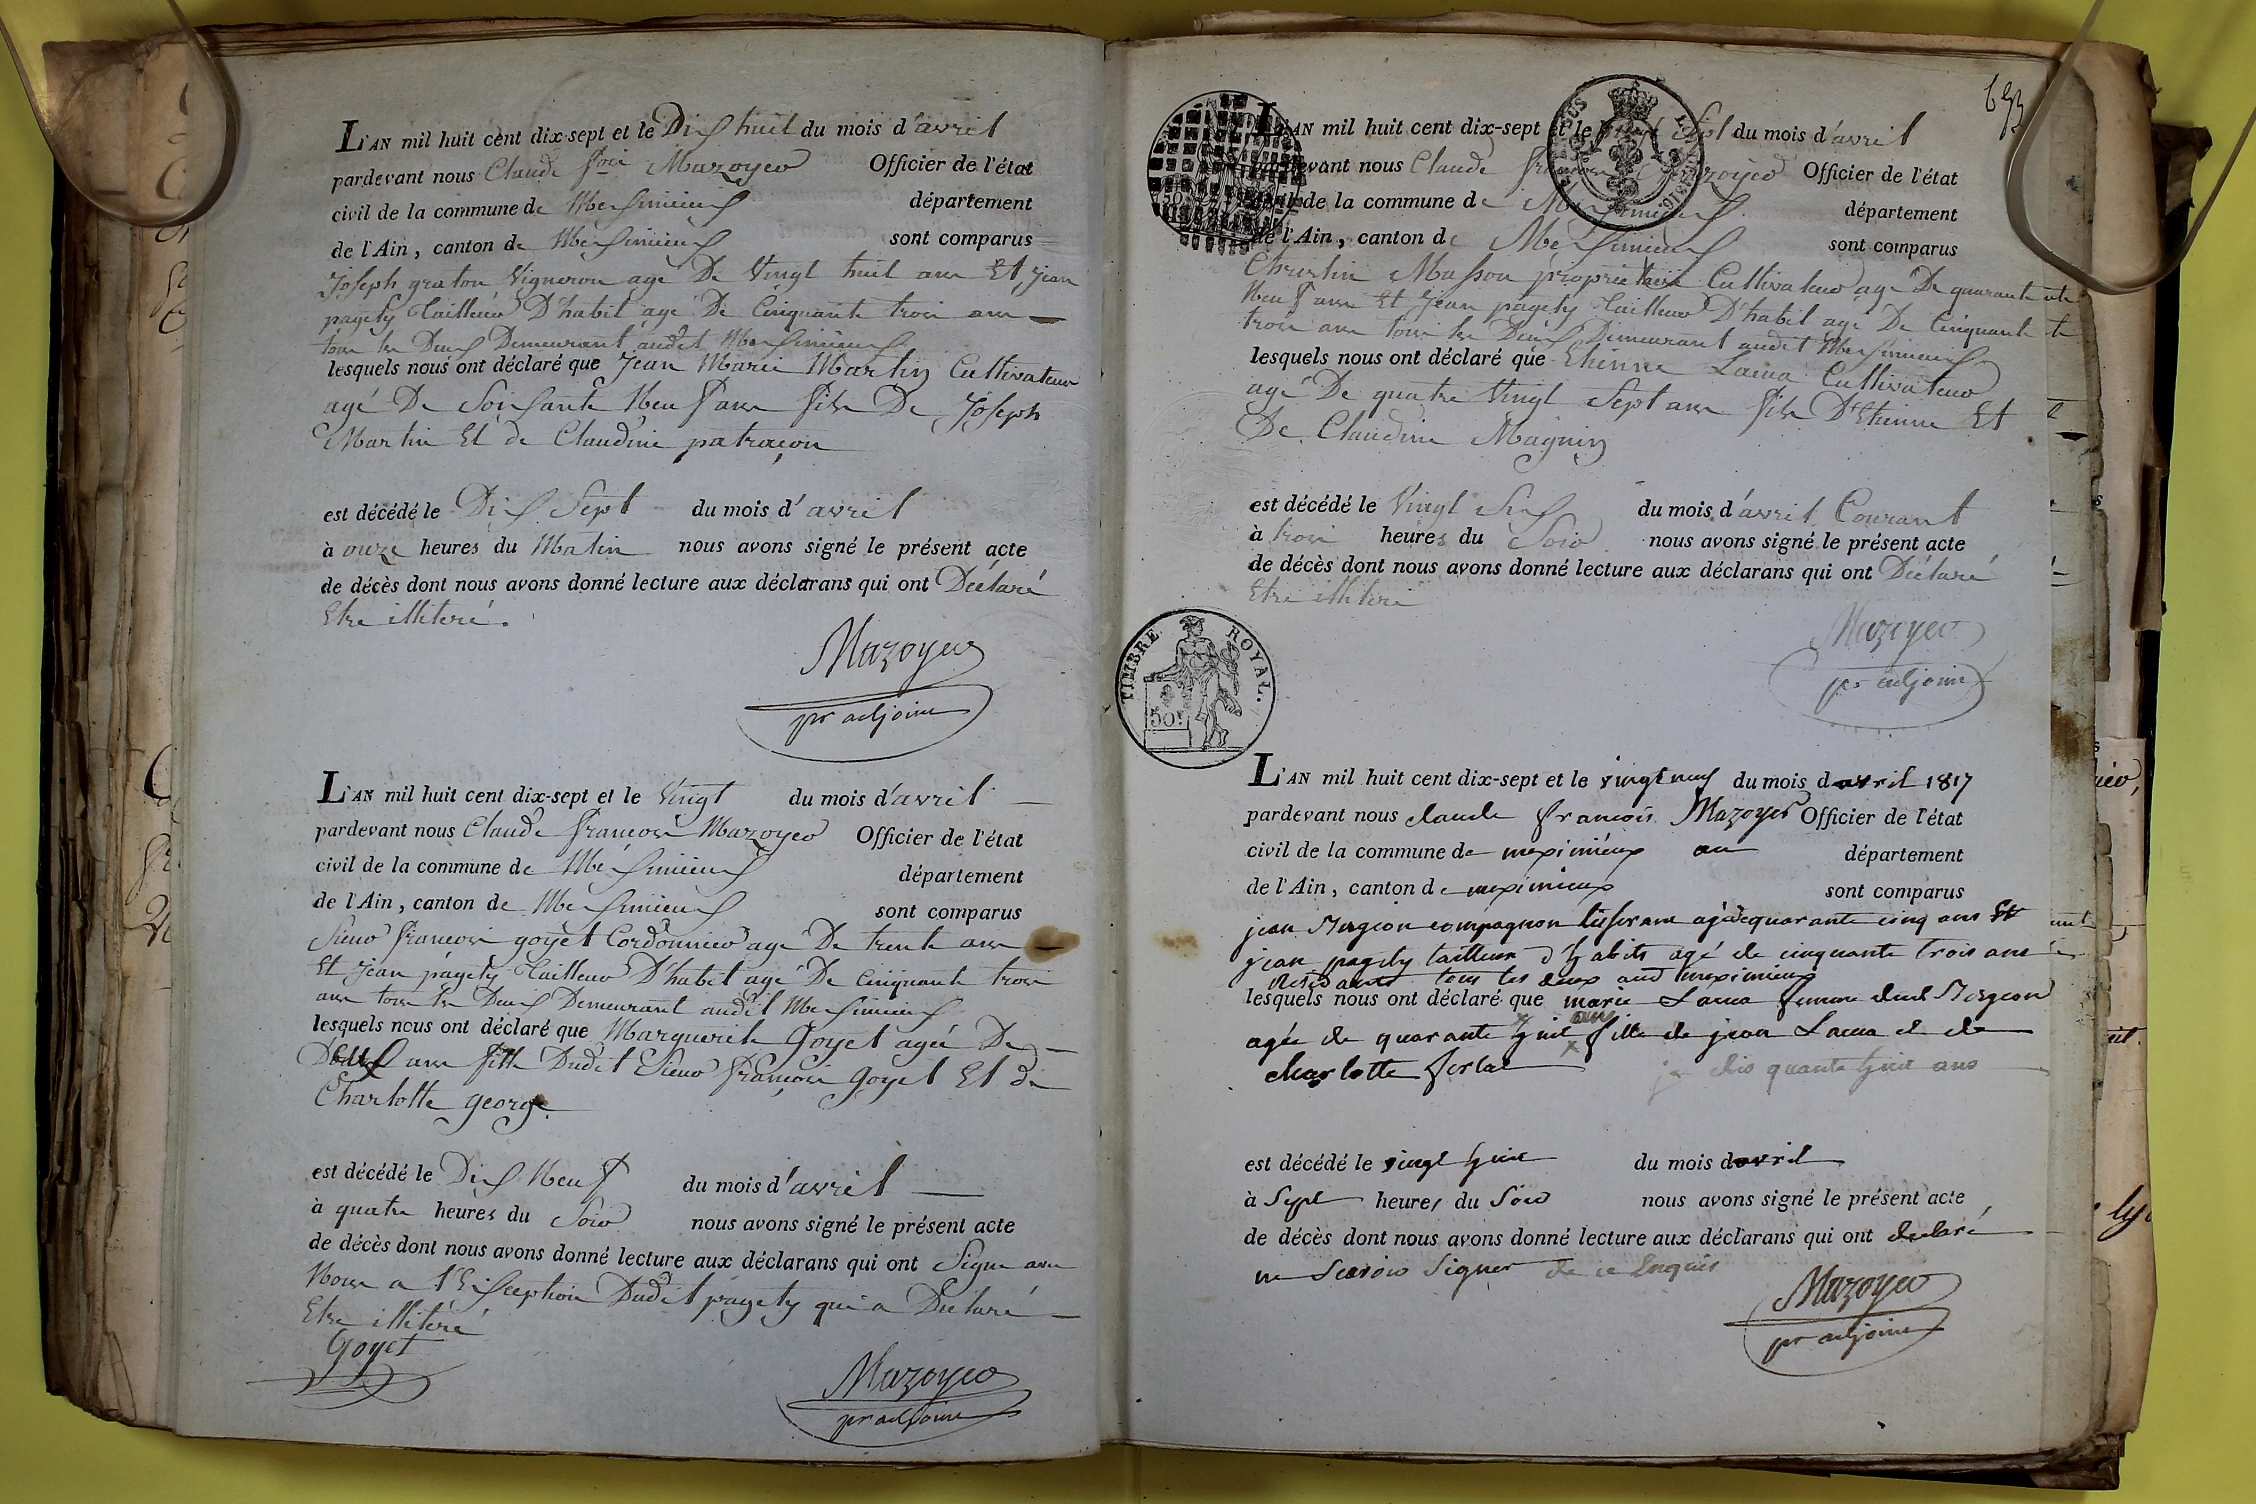 L'AN mil huit cent dix-sept et le Dix huit du mois d'avril
pardevant nous Claude fcoi Mazoyer Officier de l'état
civil de la commune de Meximieux département
de l'Ain, canton de Meximieux sont comparus
Joseph graton Vigneron agé De Vingt huit ans Et Jean
pagety Tailleur D'habit agé De Cinquante trois ans
tous les Deux Demeurant audit Meximieux
lesquels nous ont déclaré que Jean Marie Martin Cultivateur
agé De Soixante Neuf ans fils De Joseph
Martin Et de Claudine patraçon
est décédé le Dix Sept du mois d'avril
à onze heures du Matin nous avons signé le présent acte
de décès dont nous avons donné lecture aux déclarans qui ont Déclaré
Etre illiteré.
Mazoyer
pr adjoint
L'AN mil huit cent dix-sept et le Vingt du mois d'avril
pardevant nous Claude françois Mazoyer Officier de l'état
civil de la commune de Meximieux département
de l'Ain, canton de Meximieux sont comparus
Sieur françois goyet Cordonnier agé De trente ans
Et Jean pagety Tailleur D'habit agé De Cinquante trois
ans tous les Deux Demeurant audit Meximieux
lesquels nous ont déclaré que Marguerite Goyet agée De
ans fille Dudit Sieur françois Goyet Et de
Charlotte george
est décédé le Dix Neuf du mois d'avril
à quatre heures du Soir nous avons signé le présent acte
de décès dont nous avons donné lecture aux déclarans qui ont Signé avec
Nous a l'Exception Dudit pagety qui a Déclaré
Etre illiteré
Goyet
Mazoyer
pr adjoint
653
L'AN mil huit cent dix-sept et le Vingt Sept du mois d'avril
pardevant nous Claude françois Mazoyer Officier de l'état
civil de la commune de Meximieux département
de l'Ain, canton de Meximieux sont comparus
Christin Masson proprietaire Cultivateur agé De quarante
Neuf ans Et Jean pagety Tailleur D'habit agé De Cinquante
trois ans tous les Deux Demeurant audit Meximieux
lesquels nous ont déclaré que Etienne Laina Cultivateur
agé De quatre Vingt Sept ans fils D'Etienne Et
De Claudine Magnin
est décédé le Vingt Six du mois d'avril Courant
à trois heures du Soir nous avons signé le présent acte
de décès dont nous avons donné lecture aux déclarans qui ont Déclaré
Etre illiteré
TIMBRE ROYAL.
50c
Mazoyer
pr adjoint
L'AN mil huit cent dix-sept et le vingt neuf du mois d avril 1817
pardevant nous claude francois Mazoyer Officier de l'état
civil de la commune de meximieux département
de l'Ain, canton de meximieux sont comparus
jean compagnon agé de quarante cinq ans Et
jean pagety tailleur d'habits agé de cinquante trois ans
Residants tous les deux aud meximieux
lesquels nous ont déclaré que marie Laina femme dud
agée de quarante huit ans fille de jean Laina et de
charlotte ferlat je dis quarante huit ans
est décédé le vingt huit du mois d avril
à Sept heures du Soir nous avons signé le présent acte
de décès dont nous avons donné lecture aux déclarans qui ont declaré
ne Scavoir Signer de ce Enquis
Mazoyer
pr adjoint